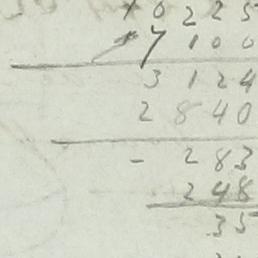 10225
7100
3124
2840
- 283
248
35